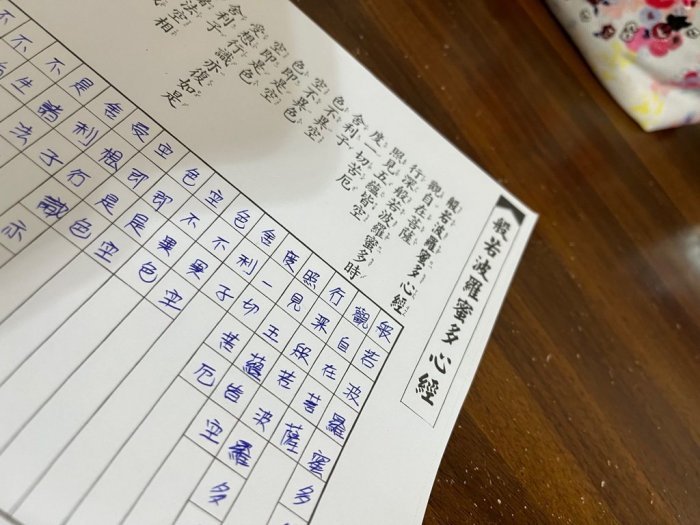 般若波羅蜜多心經
般若波羅蜜多心經
觀自在菩薩
行深般若波羅蜜多時
照見五蘊皆空
度一切苦厄
舍利子
色不異空
空不異色
色即是空
空即是色
受想行識亦復如是
舍利子
諸法空相
般若波羅蜜多
觀自在菩薩
行深般若波羅多
照見五蘊皆空
度一切苦厄
舍利子
色不異空
空不異色
色即是空
空即是色
受想行識亦
舍利子
是諸法
不生
不